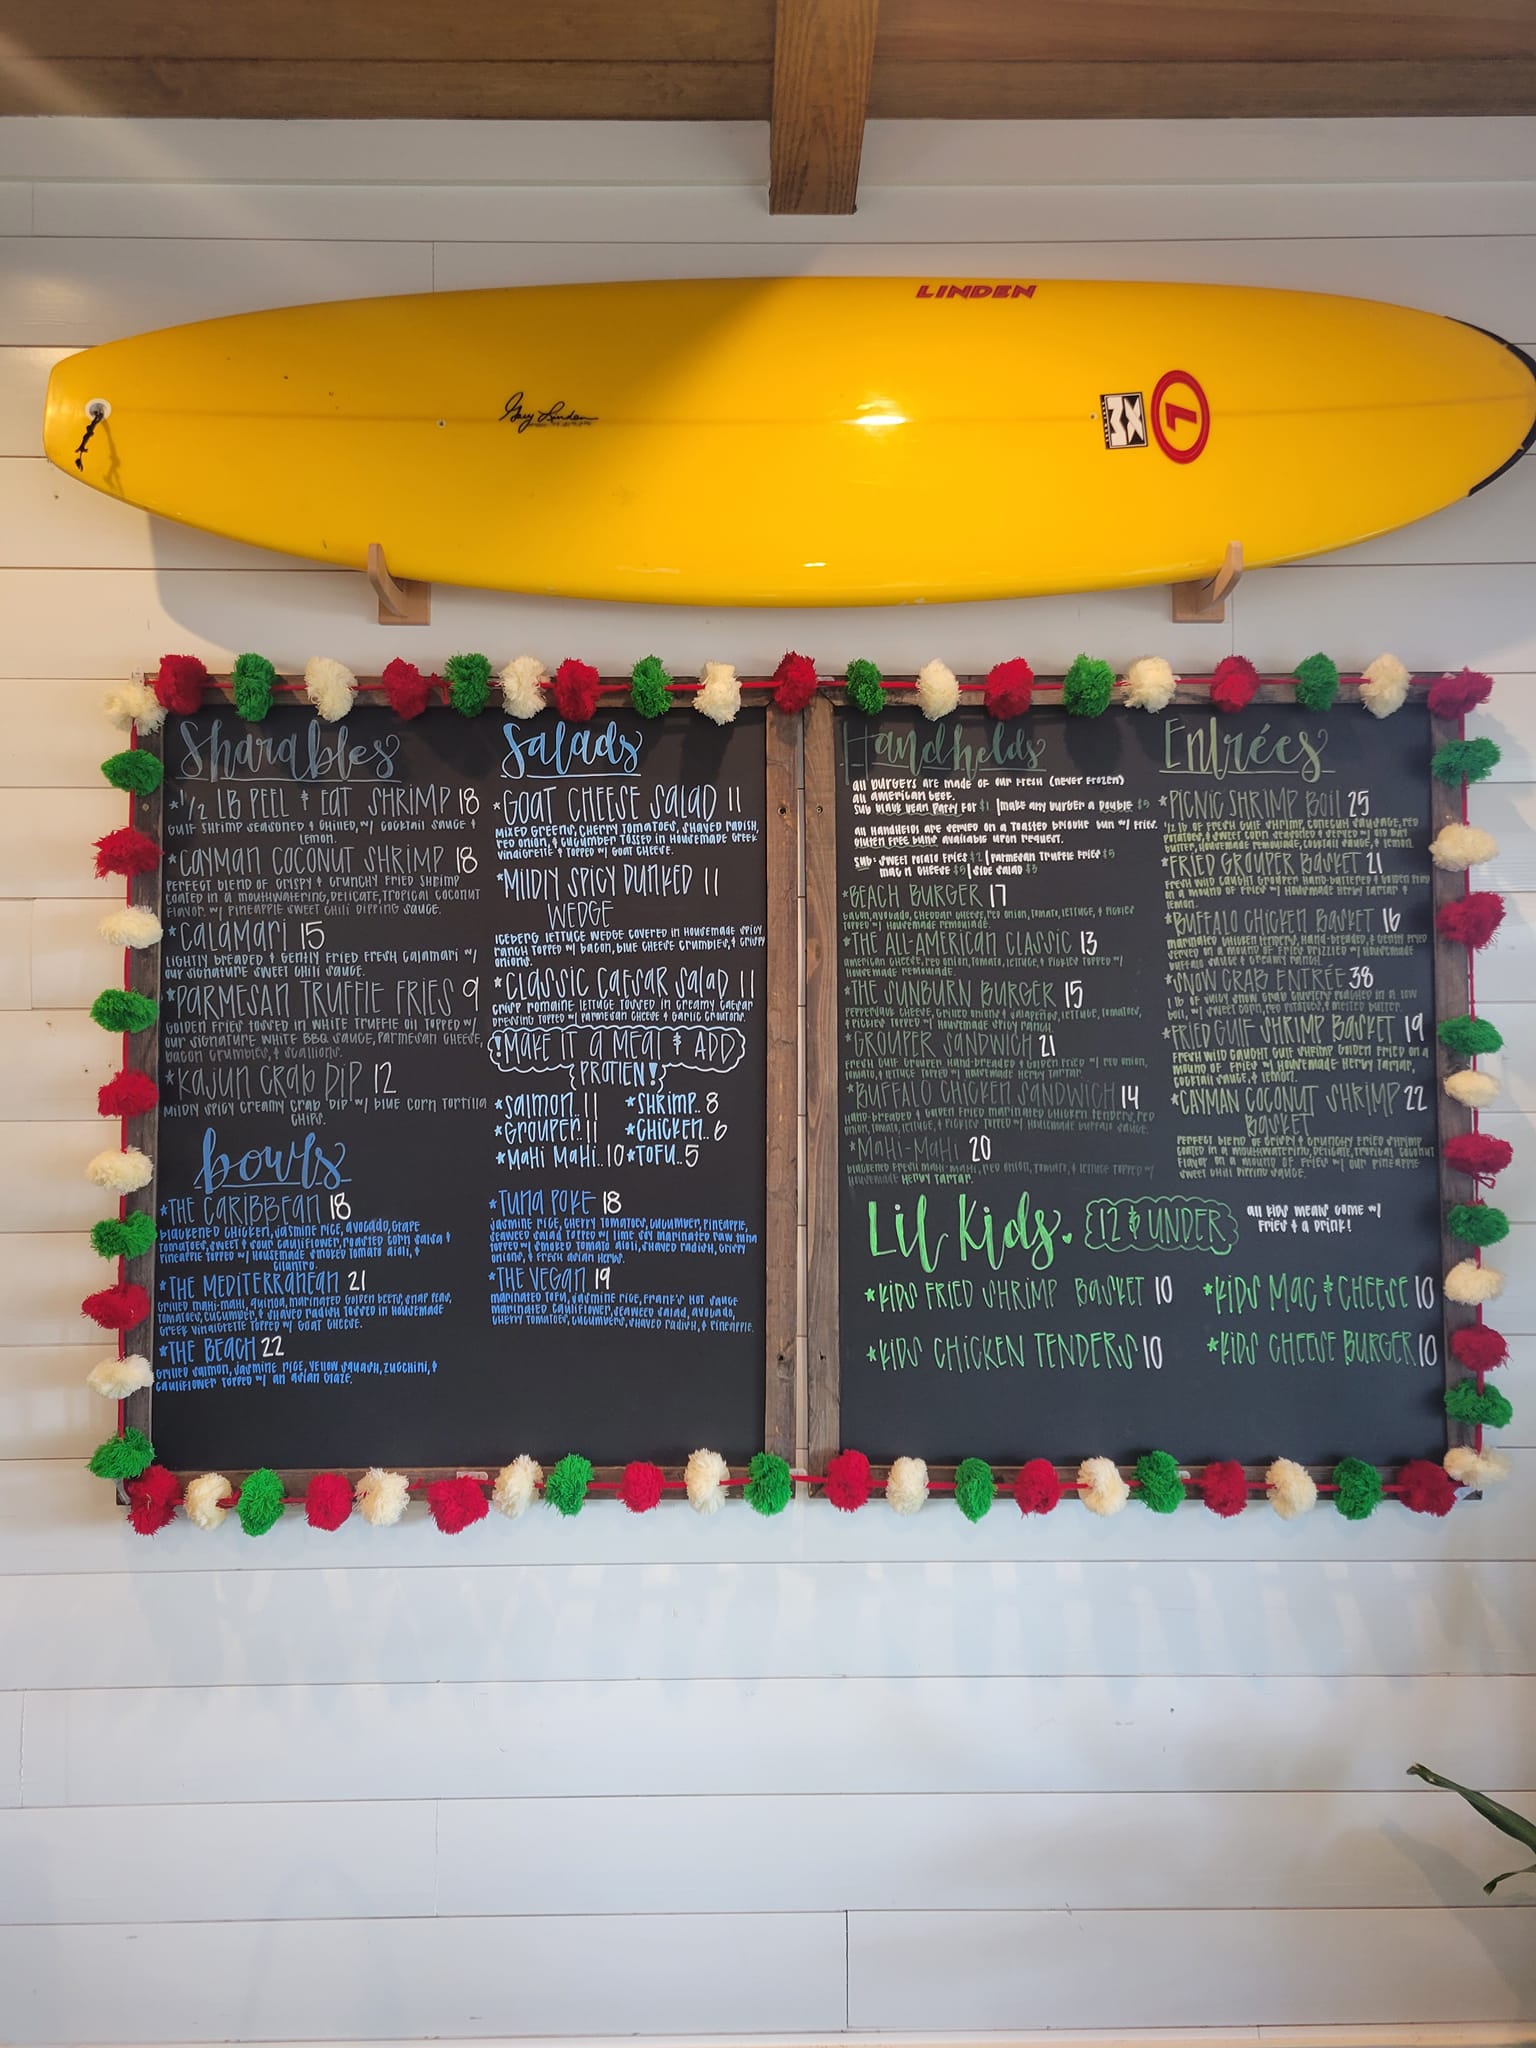 LINDEN
Gary Linden
L
Sharables
*1/2 LB PEEL & EAT SHRIMP 18
GULF SHRIMP SEASONED & CHILLED, W/ COCKTAIL SAUCE &
LEMON.
*CAYMAN COCONUT SHRIMP 18
PERFECT BLEND OF CRISPY & CRUNCHY FRIED SHRIMP
COATED IN A MOUTHWATERING, DELICATE, TROPICAL COCONUT
FLAVOR. W/ PINEAPPLE SWEET CHILI DIPPING SAUCE.
*CALAMARI 15
LIGHTLY BREADED & GENTLY FRIED FRESH CALAMARI W/
OUR SIGNATURE SWEET CHILI SAUCE.
*PARMESAN TRUFFLE FRIES 9
GOLDEN FRIES TOSSED IN WHITE TRUFFLE OIL TOPPED W/
OUR SIGNATURE WHITE BBQ SAUCE, PARMESAN CHEESE,
BACON CRUMBLES, & SCALLIONS.
*KAJUN CRAB DIP 12
MILDLY SPICY CREAMY CRAB DIP W/ BLUE CORN TORTILLA
CHIPS.
Salads
*GOAT CHEESE SALAD 11
MIXED GREENS, CHERRY TOMATOES, SHAVED RADISH,
RED ONION, & CUCUMBER TOSSED IN HOUSEMADE GREEK
VINAIGRETTE & TOPPED W/ GOAT CHEESE.
*MILDLY SPICY DUNKED 11
WEDGE
ICEBERG LETTUCE WEDGE COVERED IN HOUSEMADE SPICY
RANCH TOPPED W/ BACON, BLUE CHEESE CRUMBLES, & CRISPY
ONIONS.
*CLASSIC CAESAR SALAD 11
CRISP ROMAINE LETTUCE TOSSED IN CREAMY CAESAR
DRESSING TOPPED W/ PARMESAN CHEESE & GARLIC CROUTONS.
!MAKE IT A MEAL & ADD
PROTIEN!
*SALMON.. 11 *SHRIMP.. 8
*GROUPER.. 11 *CHICKEN.. 6
*MAHI MAHI.. 10 *TOFU.. 5
bowls
*THE CARIBBEAN 18
BLACKENED CHICKEN, JASMINE RICE, AVOCADO, GRAPE
TOMATOES, SWEET & SOUR CAULIFLOWER, ROASTED CORN SALSA &
PINEAPPLE TOPPED W/ HOUSEMADE SMOKED TOMATO AIOLI, &
CILANTRO.
*THE MEDITERRANEAN 21
GRILLED MAHI-MAHI, QUINOA, MARINATED GOLDEN BEETS, SNAP PEAS,
TOMATOES, CUCUMBER, & SHAVED RADISH TOSSED IN HOUSEMADE
GREEK VINAIGRETTE TOPPED W/ GOAT CHEESE.
*THE BEACH 22
GRILLED SALMON, JASMINE RICE, YELLOW SQUASH, ZUCCHINI, &
CAULIFLOWER TOPPED W/ AN ASIAN GLAZE.
*TUNA POKE 18
JASMINE RICE, CHERRY TOMATOES, CUCUMBER, PINEAPPLE,
SEAWEED SALAD TOPPED W/ LIME SOY MARINATED RAW TUNA
TOPPED W/ SMOKED TOMATO AIOLI, SHAVED RADISH, CRISPY
ONIONS, & FRESH ASIAN HERBS.
*THE VEGAN 19
MARINATED TOFU, JASMINE RICE, FRANK'S HOT SAUCE
MARINATED CAULIFLOWER, SEAWEED SALAD, AVOCADO,
CHERRY TOMATOES, CUCUMBERS, SHAVED RADISH, & PINEAPPLE.
Handhelds
ALL BURGERS ARE MADE OF OUR FRESH (NEVER FROZEN)
ALL AMERICAN BEEF.
SUB BLACK BEAN PARTY FOR $1 | MAKE ANY BURGER A DOUBLE $5
ALL HANDHELDS ARE SERVED ON A TOASTED BRIOCHE BUN W/ FRIES.
GLUTEN FREE BUNS AVAILABLE UPON REQUEST.
SUB: SWEET POTATO FRIES $2 | PARMESAN TRUFFLE FRIES $5
MAC N CHEESE $5 | SIDE SALAD $5
*BEACH BURGER 17
BACON, AVOCADO, CHEDDAR CHEESE, RED ONION, TOMATO, LETTUCE, & PICKLES
TOPPED W/ HOUSEMADE REMOULADE.
*THE ALL-AMERICAN CLASSIC 13
AMERICAN CHEESE, RED ONION, TOMATO, LETTUCE, & PICKLES TOPPED W/
HOUSEMADE REMOULADE.
*THE SUNBURN BURGER 15
PEPPERJACK CHEESE, GRILLED ONIONS & JALAPEÑOS, LETTUCE, TOMATOES,
& PICKLES TOPPED W/ HOUSEMADE SPICY RANCH.
*GROUPER SANDWICH 21
FRESH GULF GROUPER HAND-BREADED & GOLDEN FRIED W/ RED ONION,
TOMATO, & LETTUCE TOPPED W/ HOUSEMADE HERBY TARTAR.
*BUFFALO CHICKEN SANDWICH 14
HAND-BREADED & GOLDEN FRIED MARINATED CHICKEN TENDERS, RED
ONION, TOMATO, LETTUCE, & PICKLES TOPPED W/ HOUSEMADE BUFFALO SAUCE.
*MAHI-MAHI 20
BLACKENED FRESH MAHI-MAHI, RED ONION, TOMATO, & LETTUCE TOPPED W/
HOUSEMADE HERBY TARTAR.
Entrées
*PICNIC SHRIMP BOIL 25
1/2 LB OF FRESH GULF SHRIMP, CONECUH SAUSAGE, RED
POTATOES, & SWEET CORN SEASONED & SERVED W/ OLD BAY
BUTTER, HOUSEMADE REMOULADE, COCKTAIL SAUCE, & LEMON.
*FRIED GROUPER BASKET 21
FRESH WILD CAUGHT GROUPER HAND-BATTERED & GOLDEN FRIED
ON A MOUND OF FRIES W/ HOUSEMADE HERBY TARTAR &
LEMON.
*BUFFALO CHICKEN BASKET 16
MARINATED CHICKEN TENDERS, HAND-BREADED & GENTLY FRIED
SERVED ON A MOUND OF FRIES DRIZZLED W/ HOUSEMADE
BUFFALO SAUCE & CREAMY RANCH.
*SNOW CRAB ENTRÉE 38
1 LB OF JUICY SNOW CRAB CLUSTERS POACHED IN A LOW
BOIL, W/ SWEET CORN, RED POTATOES, & MELTED BUTTER.
*FRIED GULF SHRIMP BASKET 19
FRESH WILD CAUGHT GULF SHRIMP GOLDEN FRIED ON A
MOUND OF FRIES W/ HOUSEMADE HERBY TARTAR,
COCKTAIL SAUCE, & LEMON.
*CAYMAN COCONUT SHRIMP 22
BASKET
PERFECT BLEND OF CRISPY & CRUNCHY FRIED SHRIMP
COATED IN A MOUTHWATERING, DELICATE, TROPICAL COCONUT
FLAVOR ON A MOUND OF FRIES W/ OUR PINEAPPLE
SWEET CHILI DIPPING SAUCE.
Lil Kids 12 & UNDER
ALL KIDS MEALS COME W/
FRIES & A DRINK!
*KIDS FRIED SHRIMP BASKET 10
*KIDS MAC & CHEESE 10
*KIDS CHICKEN TENDERS 10
*KIDS CHEESE BURGER 10